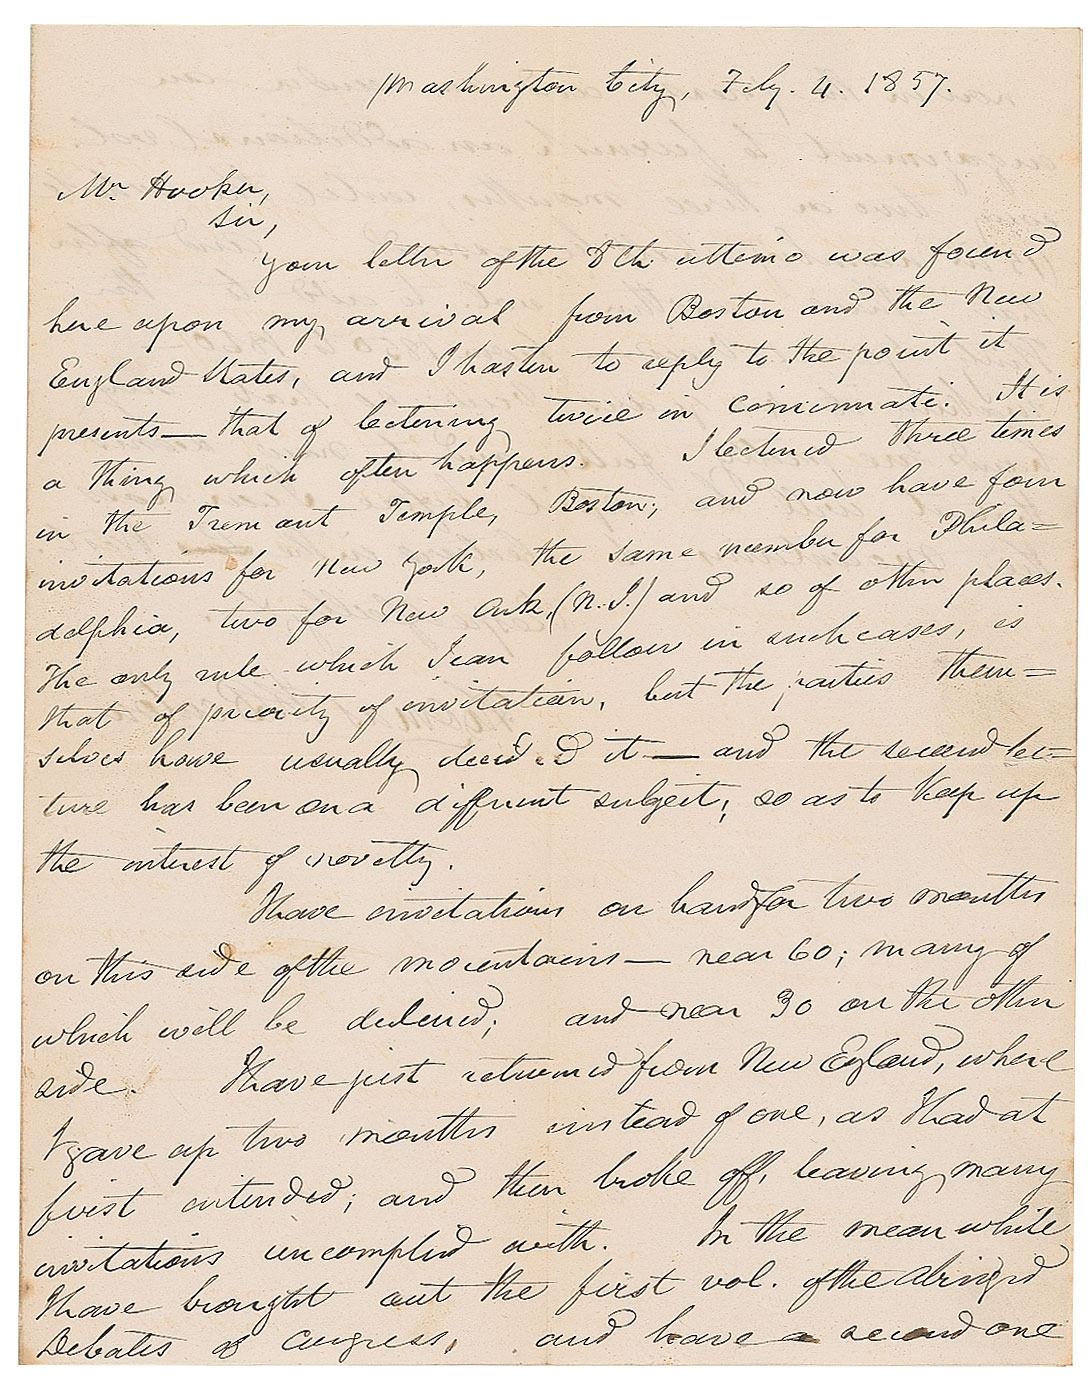 Washington City, Feby. 4. 1857.
Mr. Hooker,
Sir,
Your letter of the 8th ultimo was found
here upon my arrival from Boston and the New
England States, and I hasten to reply to the point it
presents — that of lecturing twice in Cincinnati. It is
a thing which often happens. I lectured three times
in the Tremont Temple, Boston; and now have four
invitations for New York, the same number for Phila=
delphia, two for New Ark, (N. J.) and so of other places.
The only rule which I can follow in such cases, is
that of priority of invitation, but the parties them=
selves have usually decided it — and the second lec=
ture has been on a different subject; so as to keep up
the interest of novelty.
I have invitations on hand for two months
on this side of the mountains — near 60; many of
which will be declined; and near 30 on the other
side. I have just returned from New England, where
I gave up two months instead of one, as I had at
first intended; and then broke off, leaving many
invitations uncomplied with. In the mean while
I have brought out the first vol. of the abridgd
Debates of Congress, and have a second one